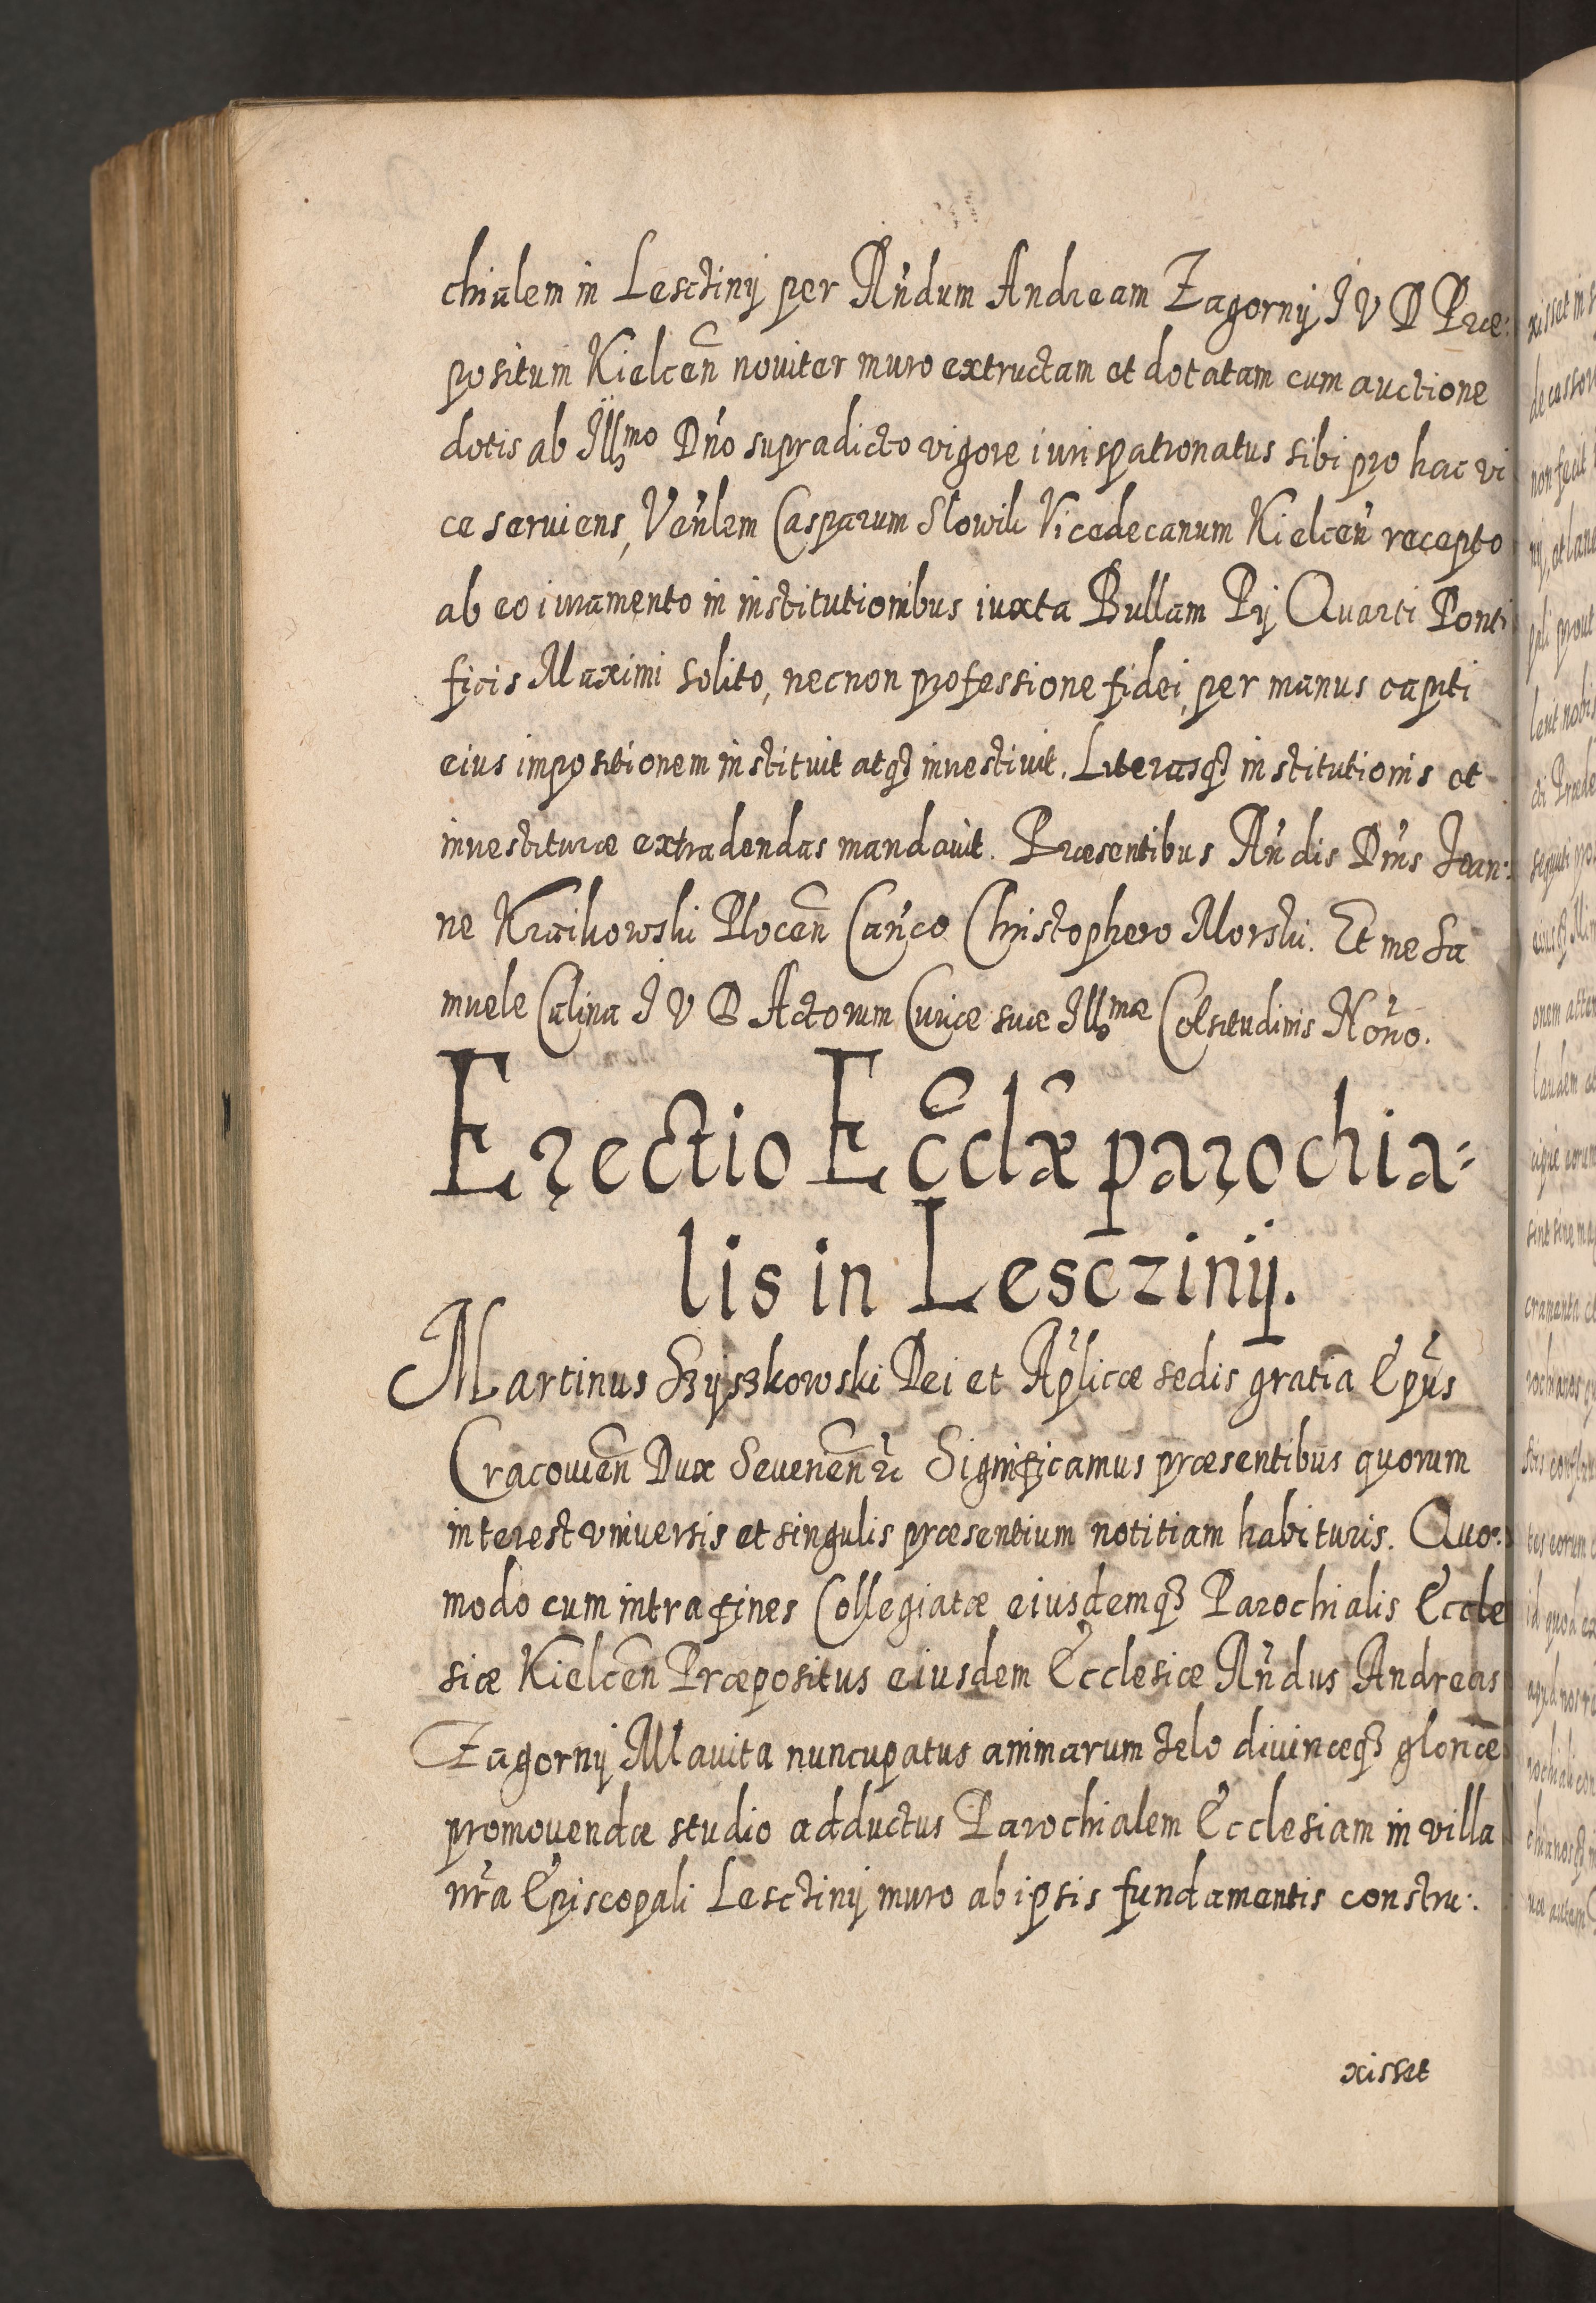 chialem in Lesctinÿ per Rñdum Andream Zagornÿ I V D Præ:
positum Kielceñ noviter muro extructam et dotatam cum auctione
dotis ab Illmo Dño supradicto vigore iurispatronatus sibi pro hac vi
ce seruiens, Veñlem Casparum Slowik Vicedecanum Kielceñ recepto
ab eo iuramento in institutionibus iuxta Bullam Pÿ Quarti Ponti
ficis Maximi solito, necnon professione fidei, per manus capiti
eius impositionem instituit atqȝ inuestiuit. Literasqȝ institutionis et
inuestituræ extradendas mandauit. Præsentibus Rñdis Dñis Joan:
ne Kraikowski Ploceñ Cañco Christophero Morski. Et me Sa
muele Calina I V D Actorum Curiæ suæ Illmæ Celsitudinis Noṛo.
Erectio Eccl̃æ parochia-
lis in Lesczinÿ.
Martinus Szyszkowski Dei et Apl̃icæ sedis gratia Ep̃us
Cracouieñ Dux Seuerieñ ꝛc Significamus præsentibus quorum
interest vniuersis et singulis præsentium notitiam habituris. Quo:
modo cum intra fines Collegiatæ eiusdemqȝ Parochialis Eccle
siæ Kielceñ Præpositus eiusdem Ecclesiæ Rñdus Andreas
Zagornÿ Mlauita nuncupatus animarum zelo diuinæqȝ gloriæ
promouendæ studio adductus Parochialem Ecclesiam in villa
nr̃a Episcopali Lesctinÿ muro ab ipsis fundamentis constru:
xisset